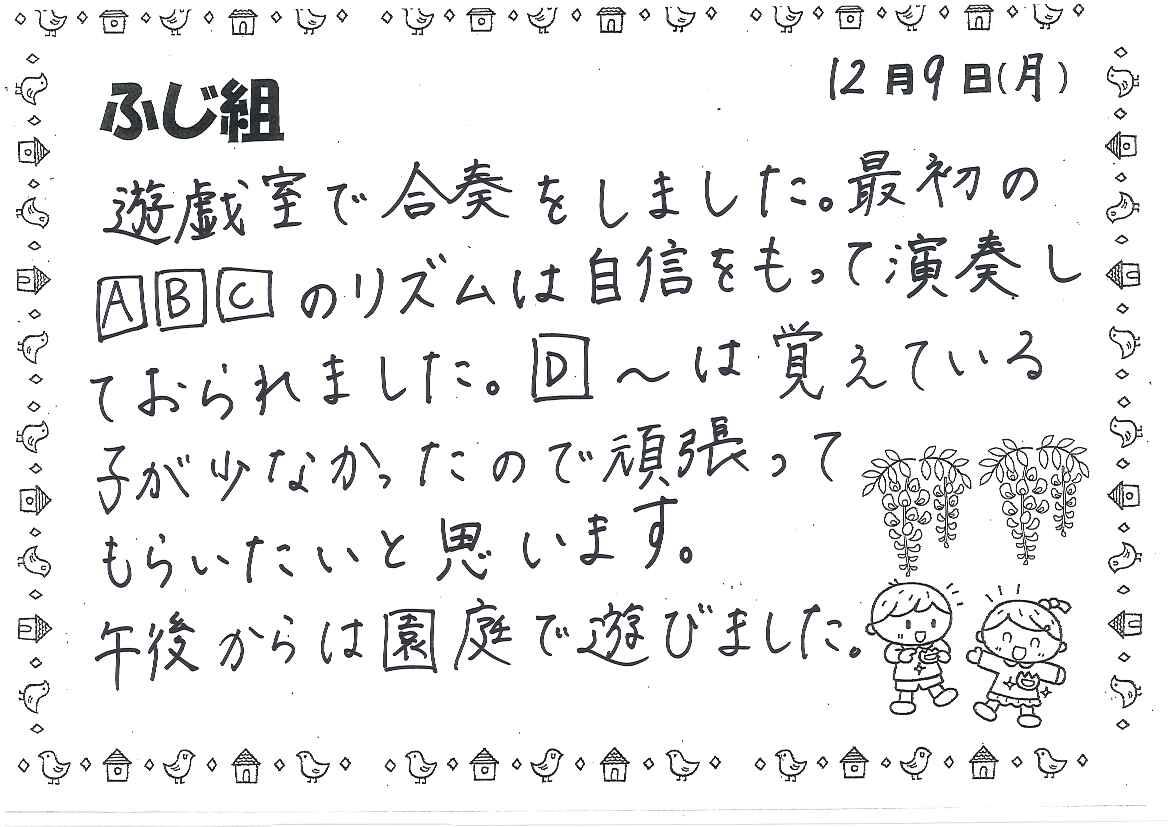 12月9日(月)
ふじ組
遊戯室で合奏をしました。最初の
ABCのリズムは自信をもって演奏し
ておられました。D～は覚えている
子が少なかったので頑張って
もらいたいと思います。
午後からは園庭で遊びました。